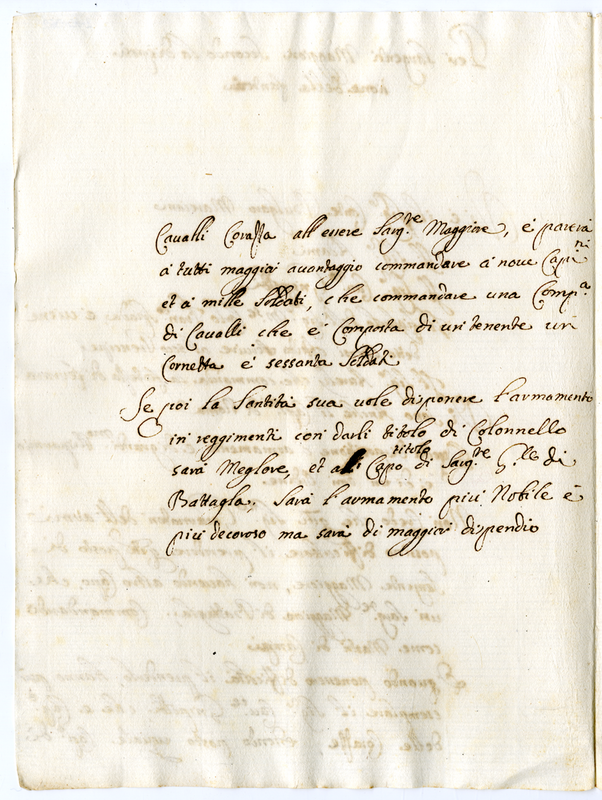 Cavalli Corassa all'essere Sarg.te Maggiore, e parerà
à tutti maggior auantaggio commandare à noue Capi.ni
et à mille Soldati, che commandare una Comp.a
di Cavalli che è Composta di un tenente un
Cornetta è sessanta Soldati
Se poi la Santità sua uole disponere l'armamento
in reggimenti con darli titolo di Colonnello
sarà Meglore, et al Capo titolo di Sarg.te G.lle di
Battagla. Sarà l'armamento più Nobile è
più decoroso ma sarà di maggior dispendio